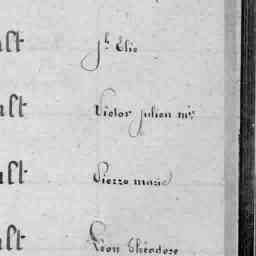 ult jh. Elie
ult Victor julien mie
ult Pierre marie
ult Léon Théodore